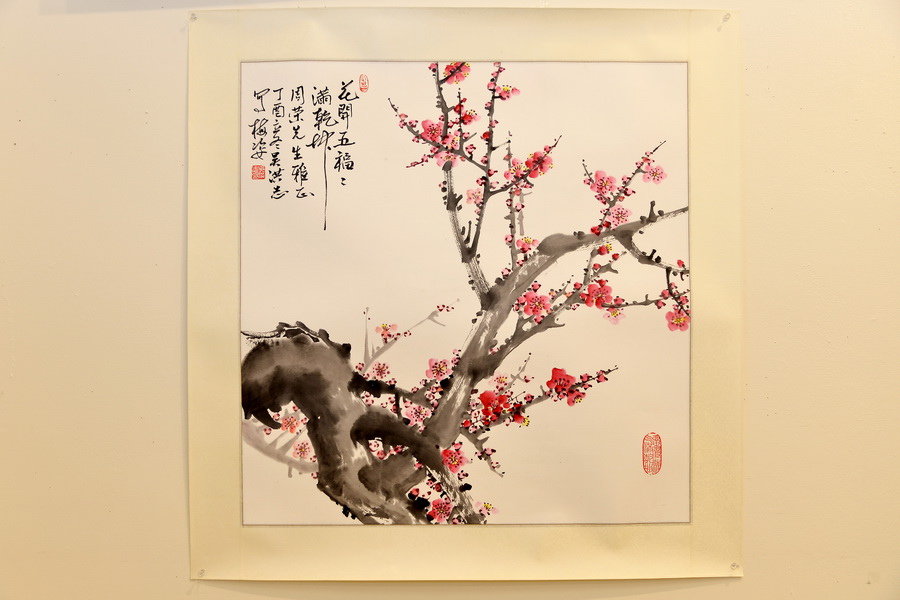 花開五福〻
滿乾坤
周荣先生雅正
丁酉冬吴洪志
写梅姿